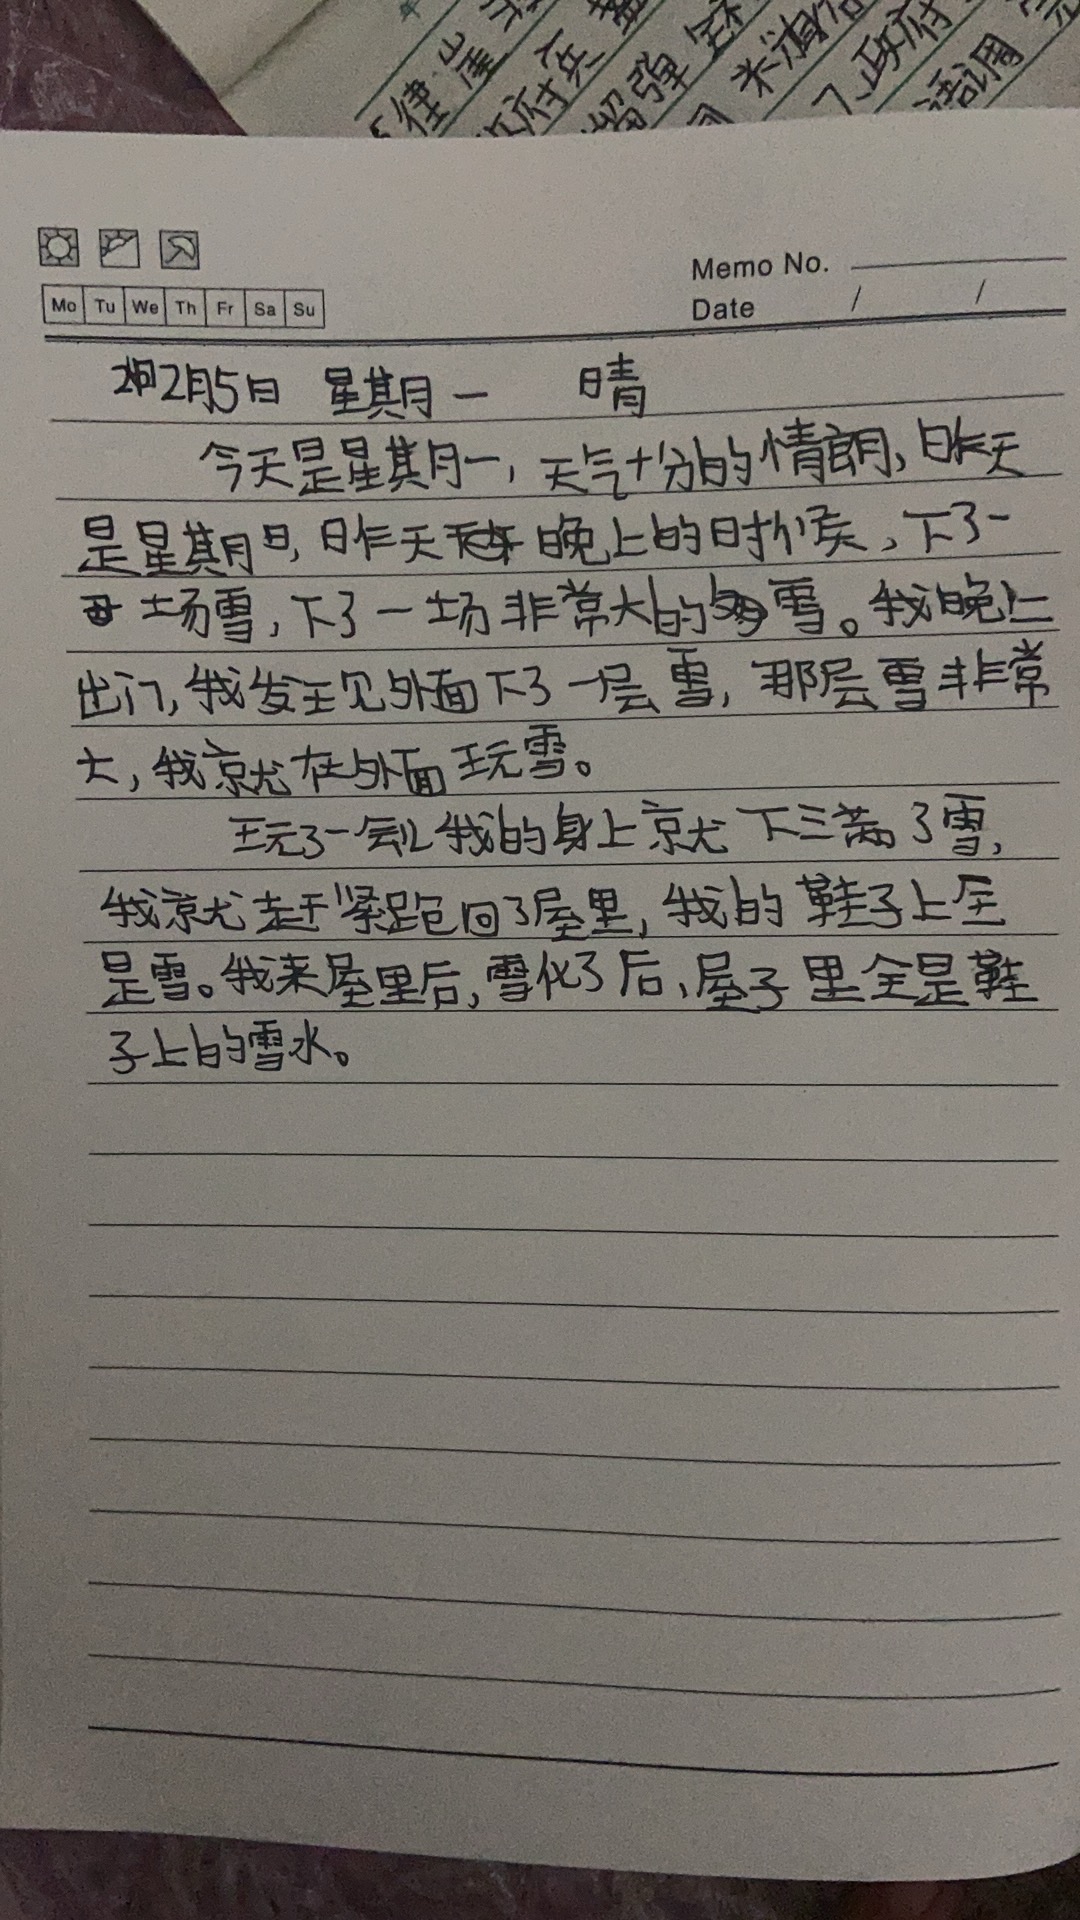 律崖
府兵
留强
米
入政府
语调
Memo No.
Mo Tu We Th Fr Sa Su
Date / /
2月5日 星期一 晴
今天是星期一,天气十分的情朗,昨天
是星期日,昨天晚上的时候,下了一
场雪,下了一场非常大的雪。我晚上
出门,我发现外面下了一层雪,那层雪非常
大,我就在外面玩雪。
玩了一会儿我的身上就下三满了雪,
我就赶紧跑回了屋里,我的鞋子上全
是雪。我来屋里后,雪化了后,屋子里全是鞋
子上的雪水。